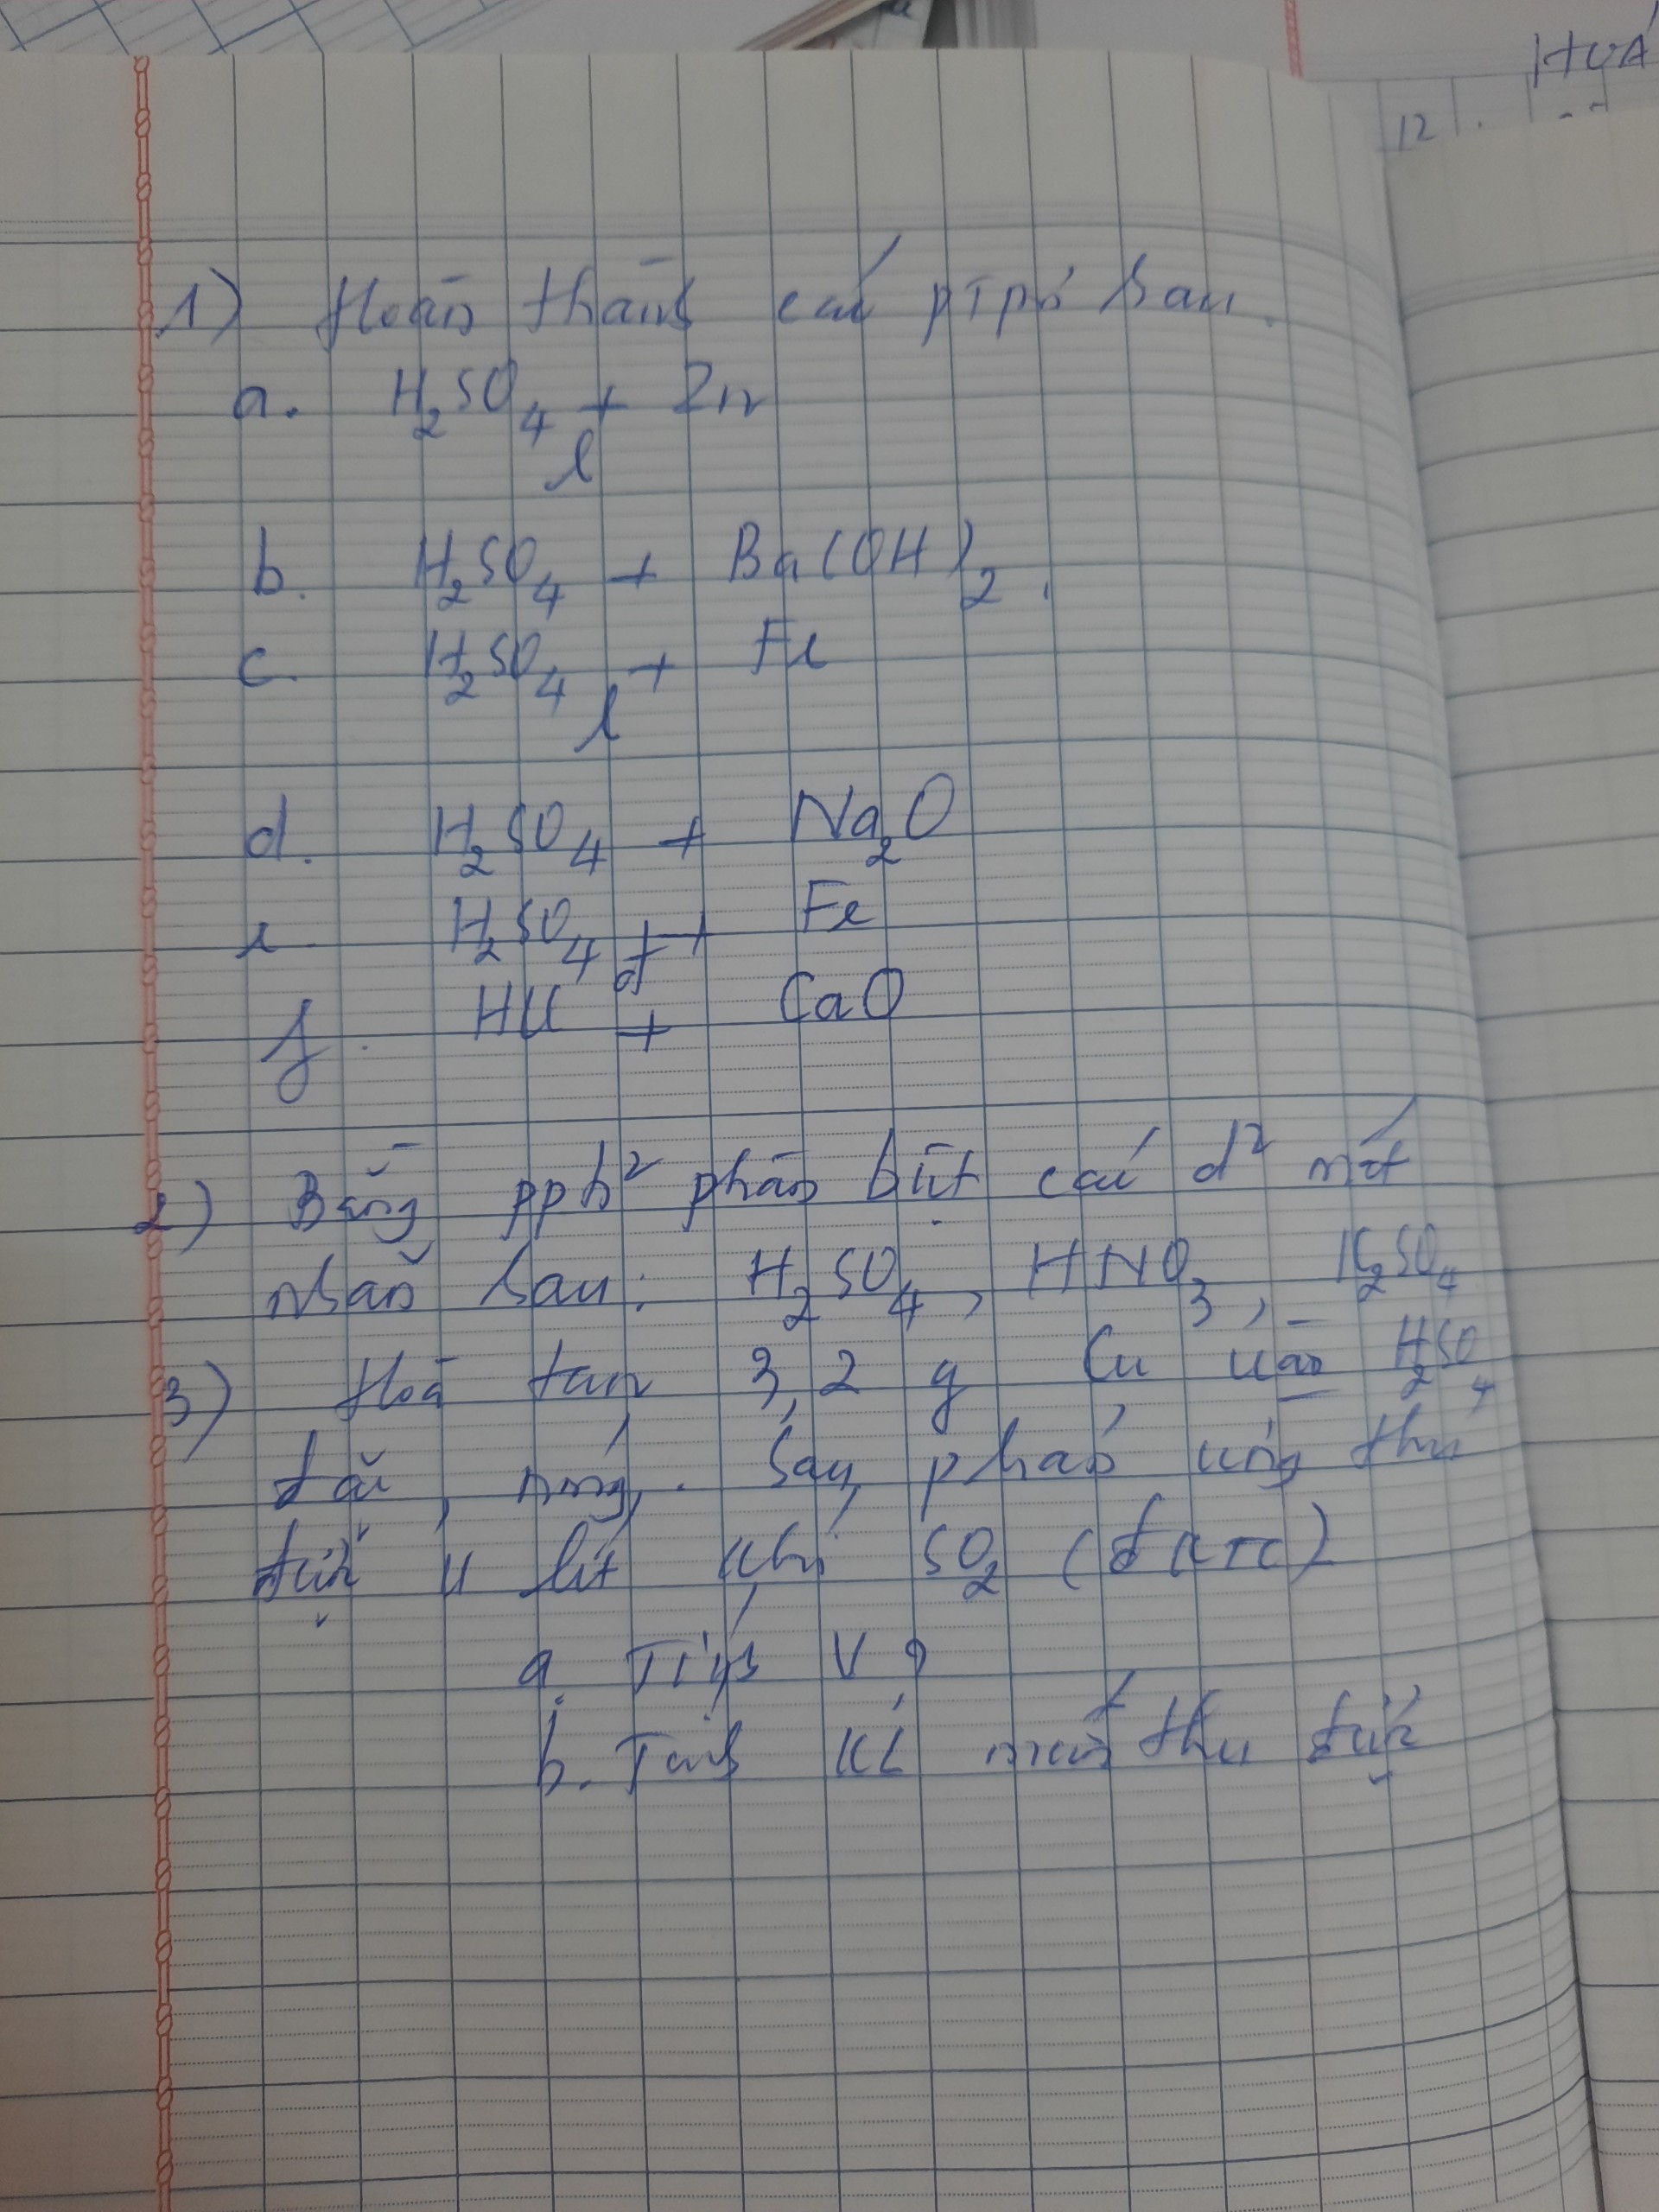 HOÁ
12
1) Hoàn thành các ptpứ sau.
a. H₂SO₄ l + Zn
b. H₂SO₄ + Ba(OH)₂.
c. H₂SO₄ l + Fe
d. H₂SO₄ + Na₂O
e. H₂SO₄ đ + Fe
f. HCl + CaO
2) Bằng pph² phân biệt các d² mất
nhãn sau: H₂SO₄, HNO₃, K₂SO₄
3) Hoà tan 3,2 g Cu vào H₂SO₄
đặc, nóng. Sau phản ứng thu
được V lít khí SO₂ (đktc)
a. Tính V?
b. Tính KL muối thu được